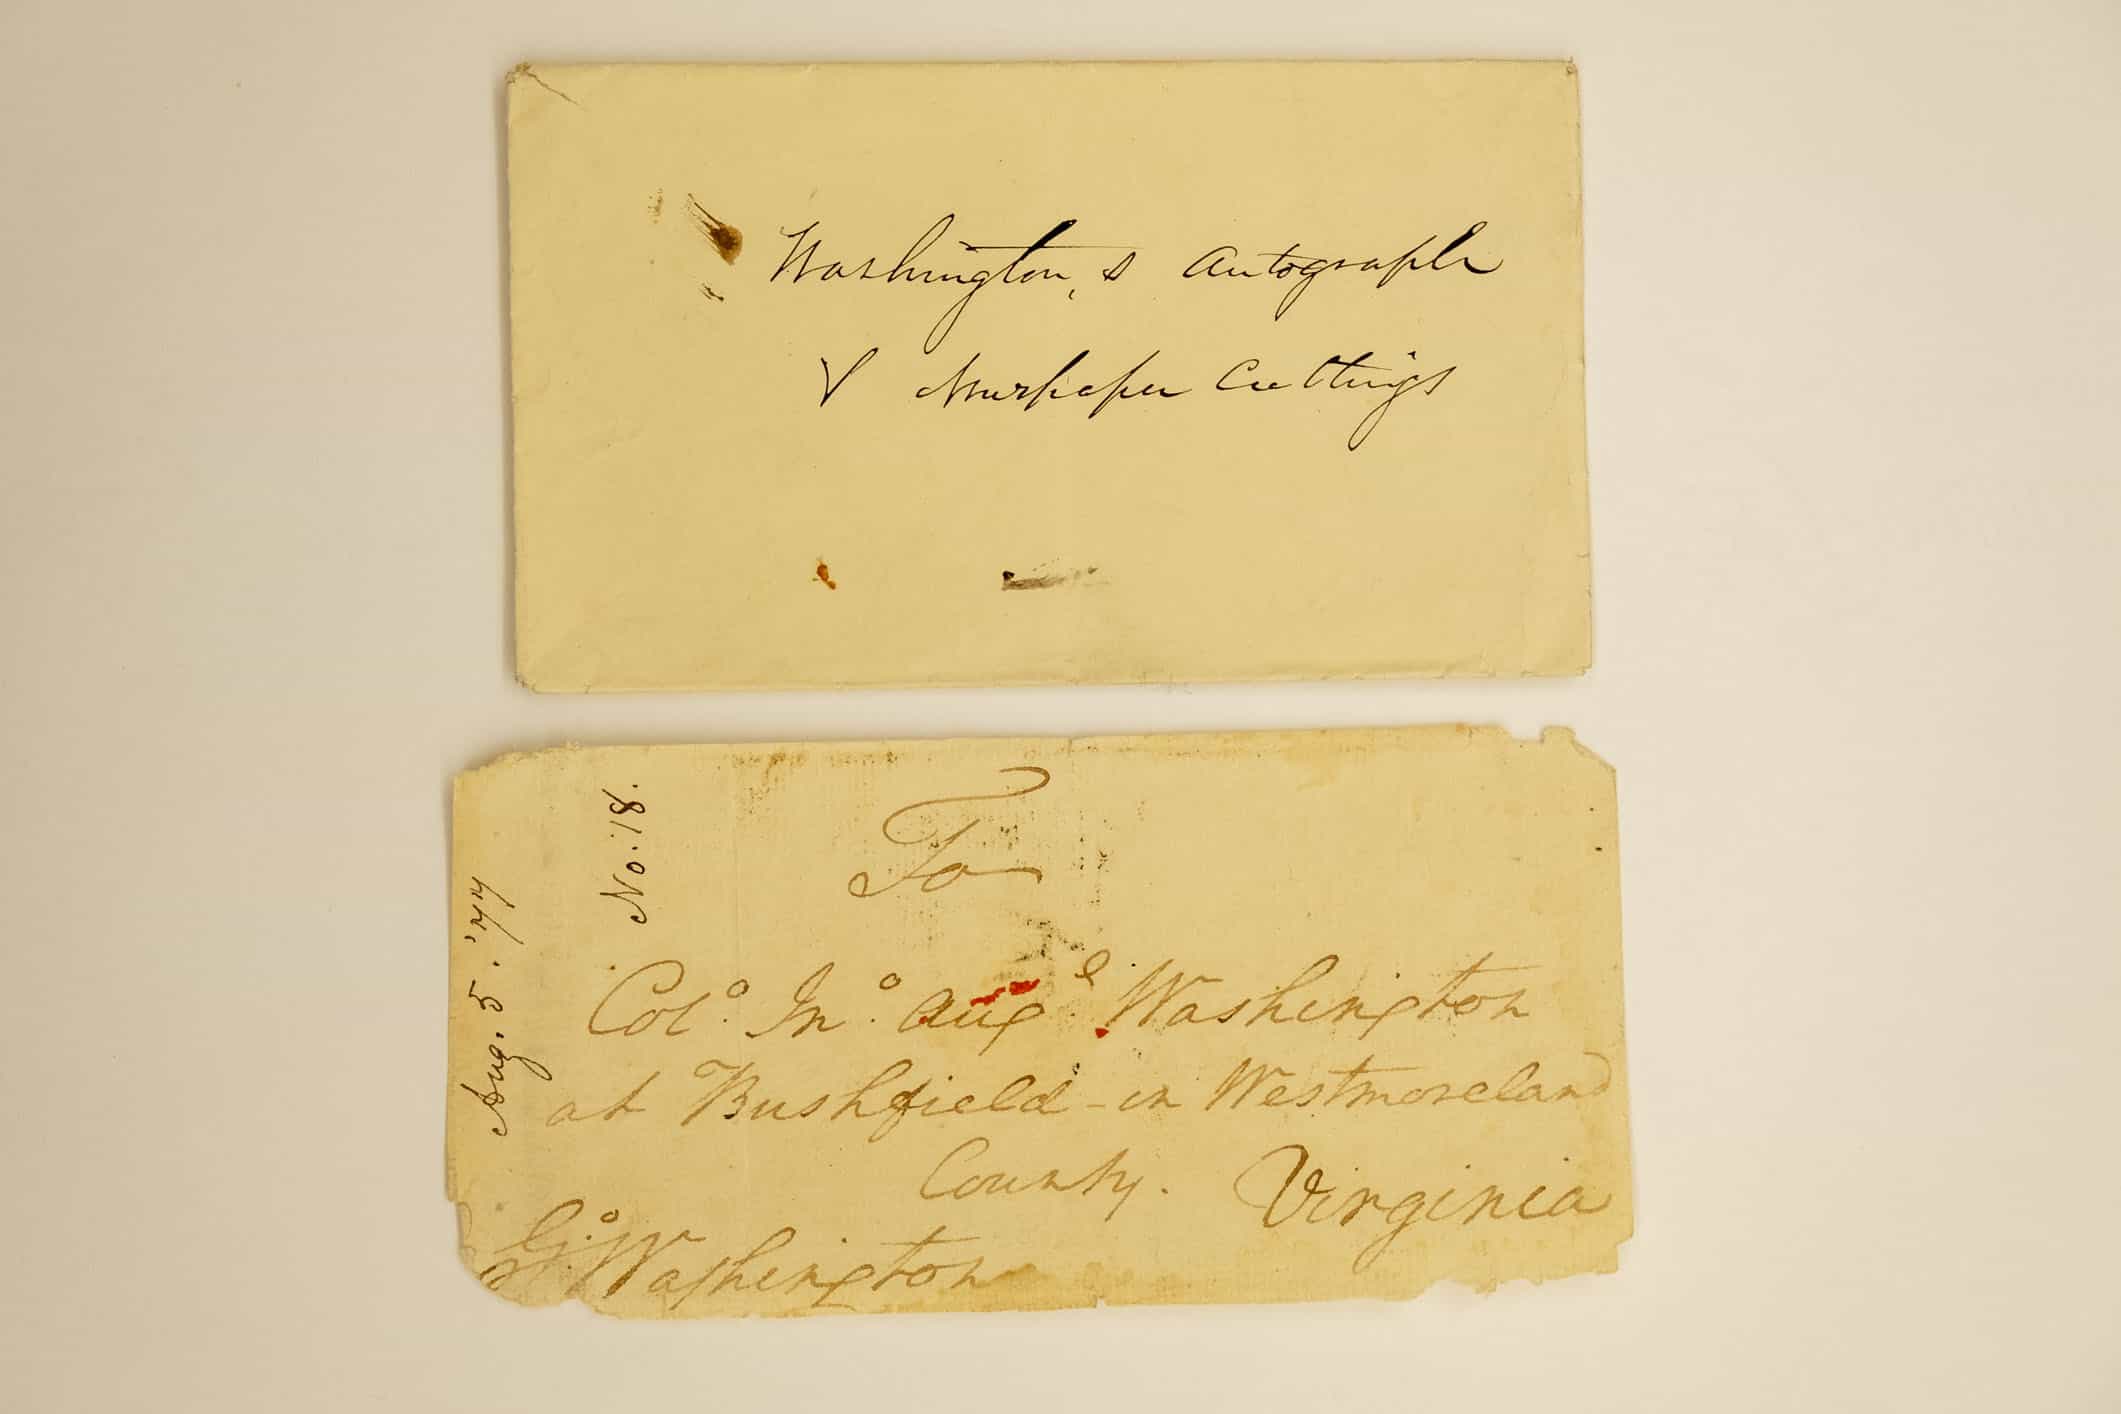 Washington,s Autograph
& Newspaper Cuttings
No. 18.
Aug. 5. '77
To
Colº. Jnº. Augᵉ. Washington
at Bushfield - in Westmoreland
County. Virginia
Gº. Washington